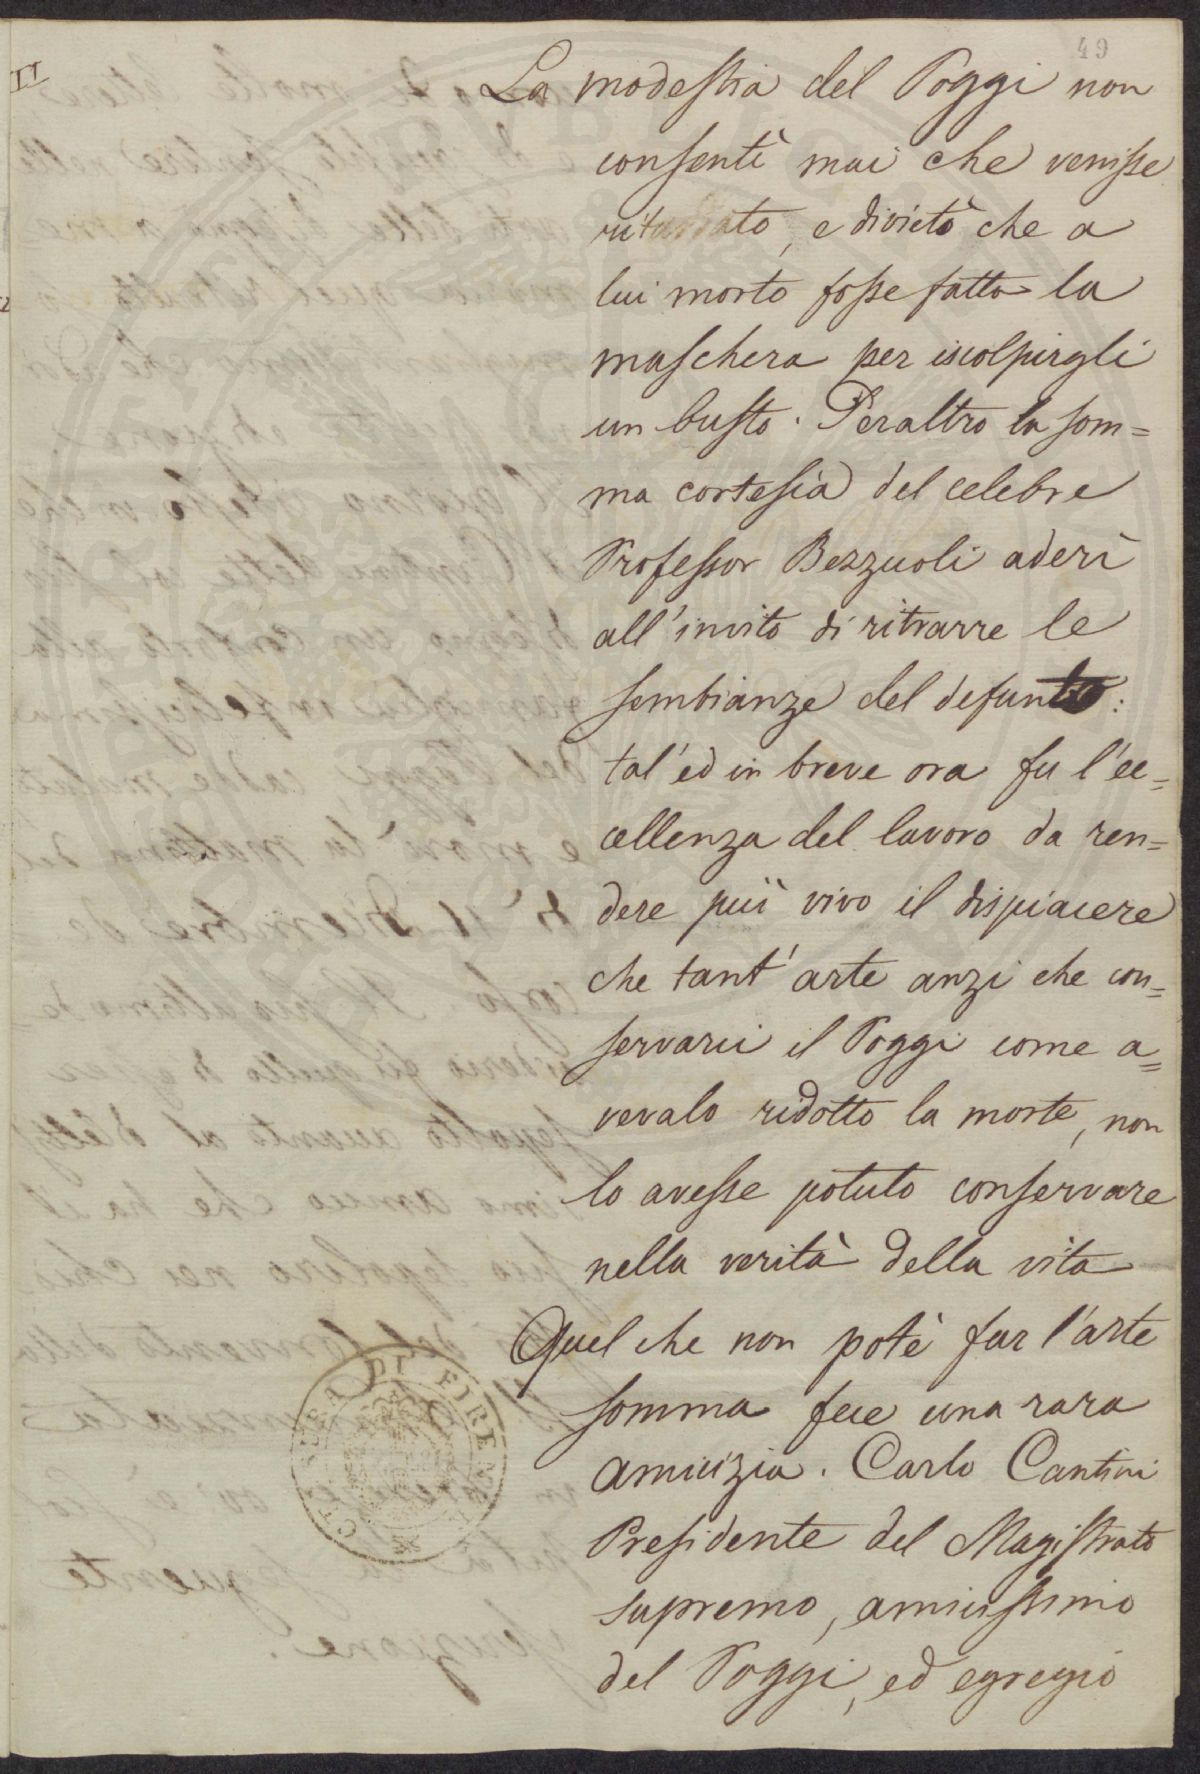 49
La modestia del Poggi non
consentì mai che venisse
ritardato, e divietò che a
lui morto fosse fatta la
maschera per iscolpirgli
un busto. Peraltro la som=
ma cortesia del celebre
Professor Bezzuoli aderì
all'invito di ritrarre le
sembianze del defunto:
tal'ed in breve ora fu l'ec=
cellenza del lavoro da ren=
dere più vivo il dispiacere
che tant'arte anzi che con=
servarci il Poggi come a=
vevalo ridotto la morte, non
lo avesse potuto conservare
nella verità della vita
Quel che non potè far l'arte
somma fece una rara
amicizia. Carlo Cantini
Presidente del Magistrato
supremo, amicissimo
del Poggi, ed egregio